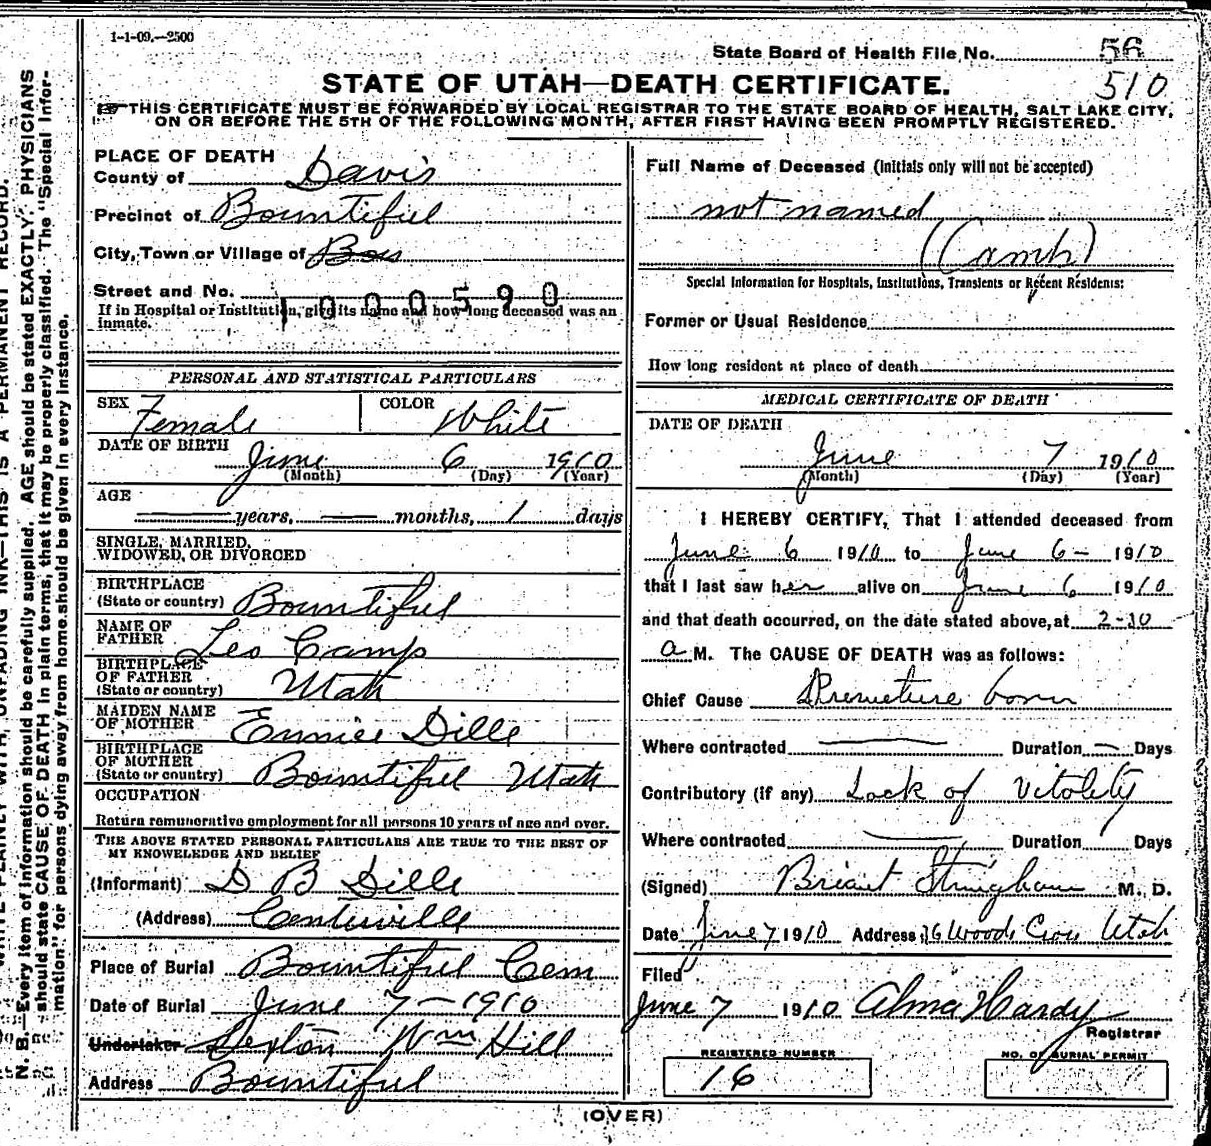 1-1-09.—2500
State Board of Health File No. 56
510
STATE OF UTAH—DEATH CERTIFICATE.
THIS CERTIFICATE MUST BE FORWARDED BY LOCAL REGISTRAR TO THE STATE BOARD OF HEALTH, SALT LAKE CITY,
ON OR BEFORE THE 5TH OF THE FOLLOWING MONTH, AFTER FIRST HAVING BEEN PROMPTLY REGISTERED.
PLACE OF DEATH
County of Davis
Precinct of Bountiful
City, Town or Village of Bou
Street and No.
1000590
If in Hospital or Institution, give its name and how long deceased was an
inmate.
PERSONAL AND STATISTICAL PARTICULARS
SEX Female COLOR White
DATE OF BIRTH June 6 1910
(Month) (Day) (Year)
AGE
years, months, 1 days
SINGLE, MARRIED,
WIDOWED, OR DIVORCED
BIRTHPLACE
(State or country) Bountiful
NAME OF
FATHER Leo Camp
BIRTHPLACE
OF FATHER
(State or country) Utah
MAIDEN NAME
OF MOTHER Eunice Dille
BIRTHPLACE
OF MOTHER
(State or country) Bountiful Utah
OCCUPATION
Return remunerative employment for all persons 10 years of age and over.
THE ABOVE STATED PERSONAL PARTICULARS ARE TRUE TO THE BEST OF
MY KNOWLEDGE AND BELIEF
(Informant) D B Dille
(Address) Centerville
Place of Burial Bountiful Cem
Date of Burial June 7-1910
Undertaker Sexton Wm Hill
Address Bountiful
Full Name of Deceased (Initials only will not be accepted)
not named
(Camp)
Special Information for Hospitals, Institutions, Transients or Recent Residents:
Former or Usual Residence
How long resident at place of death
MEDICAL CERTIFICATE OF DEATH
DATE OF DEATH
June 7 1910
(Month) (Day) (Year)
I HEREBY CERTIFY, That I attended deceased from
June 6 1910 to June 6- 1910
that I last saw her alive on June 6 1910
and that death occurred, on the date stated above, at 2-10
a M. The CAUSE OF DEATH was as follows:
Chief Cause Premeture born
Where contracted Duration — Days
Contributory (if any) Lack of Vitality
Where contracted Duration Days
(Signed) Briant Stringham M. D.
Date June 7 1910 Address Woods Cross Utah
Filed
June 7 1910 Alma Hardy
Registrar
REGISTERED NUMBER
16
NO. OF BURIAL PERMIT
(OVER)
N. B.—Every item of information should be carefully supplied. AGE should be stated EXACTLY. PHYSICIANS
should state CAUSE OF DEATH in plain terms, that it may be properly classified. The "Special Infor-
mation" for persons dying away from home should be given in every instance.